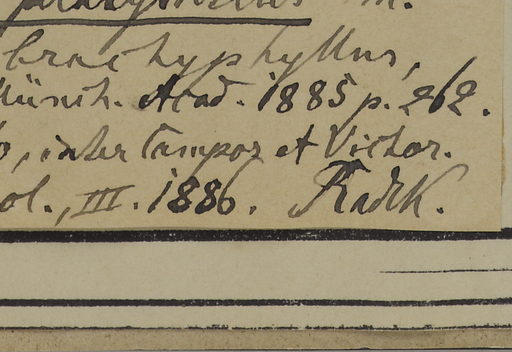 m.
brachyphyllus,
Münch. Acad. 1885 p. 262.
o, inter Campos et Victor.
ol., III. 1886. Radlk.